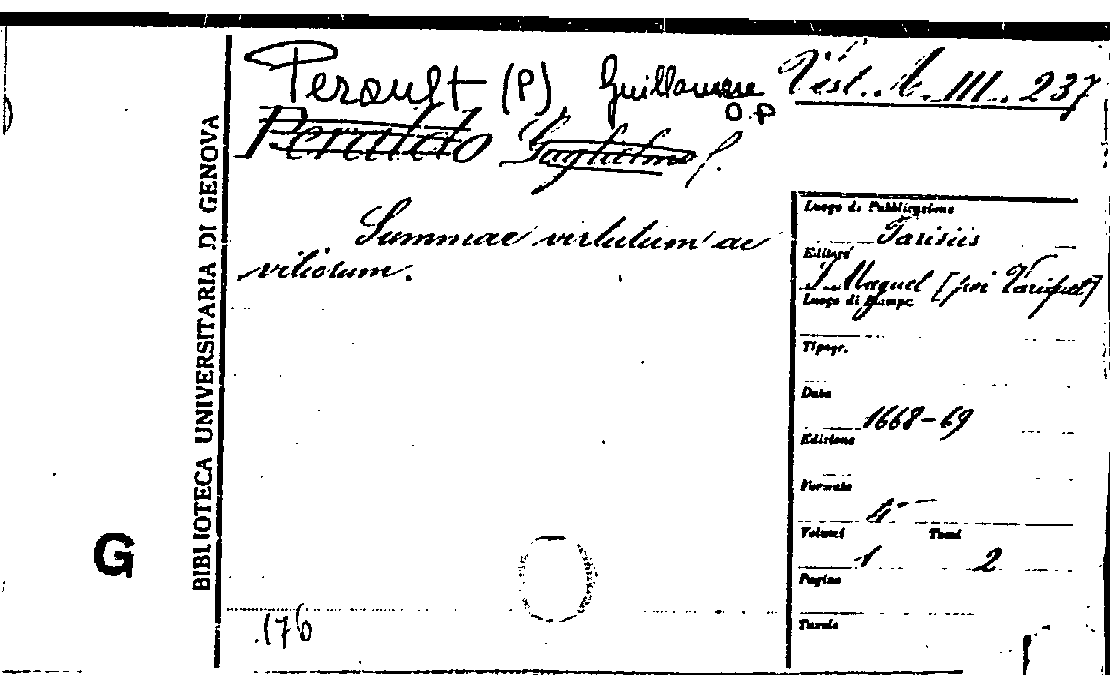 Perault (P) Guillaume
O.P
Vest. A. III. 237
Peraldo Guglielmo
Summae virtutum ac
vitiorum.
BIBLIOTECA UNIVERSITARIA DI GENOVA
G
176
Luogo di Pubblicazione
Parisiis
Editore
[poi Variquet]
Luogo di Stampa
Tipogr.
Data
1668-69
Edizione
Formato
4°
Volumi Tomi
1 2
Pagine
Tavole